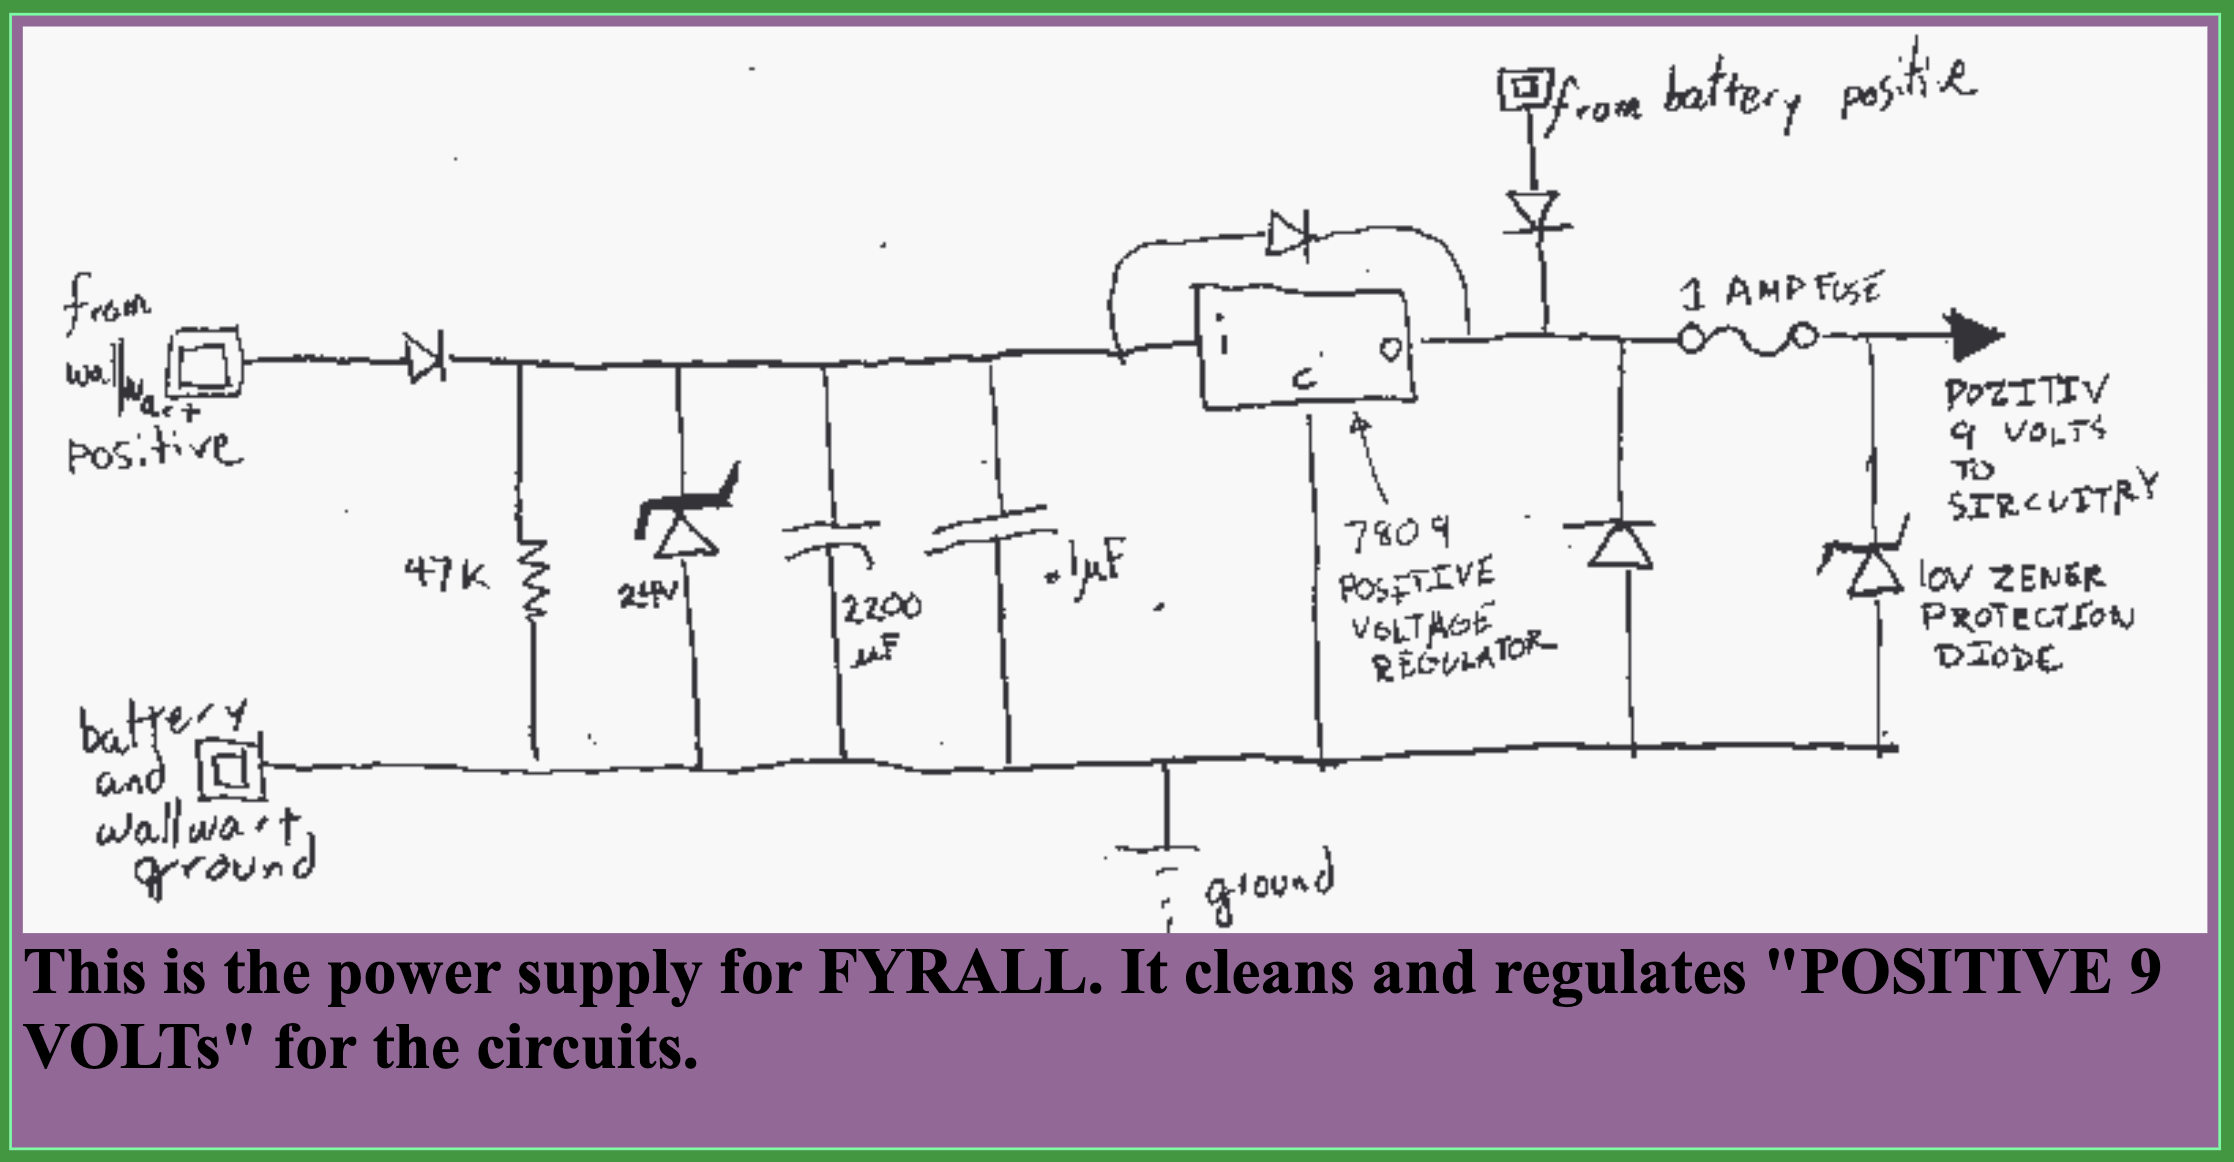 from battery positive
1 AMP FUSE
from
wallwart
positive
i
o
c
POZITIV
9 VOLTS
TO
SIRCUITRY
47K
24V
2200
µF
.1µF
7809
POSITIVE
VOLTAGE
REGULATOR
10V ZENER
PROTECTION
DIODE
battery
and
wallwart
ground
ground
This is the power supply for FYRALL. It cleans and regulates "POSITIVE 9
VOLTs" for the circuits.